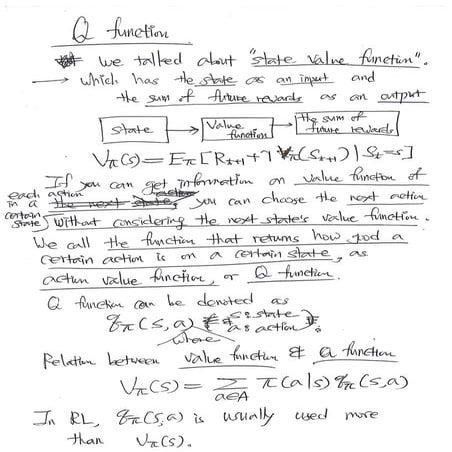 Q function
we talked about "state value function".
→ which has the state as an input and
the sum of future rewards as an output
state → value function → the sum of future rewards
Vπ(s) = Eπ[Rt+1 + γ Vπ(St+1) | St = s]
If you can get information on value function of
each action in a certain state, you can choose the next action
without considering the next state's value function.
We call the function that returns how good a
certain action is on a certain state, as
action value function, or Q function.
Q function can be denoted as
qπ(s, a) where s: state a: action.
Relation between value function & Q function
Vπ(s) = Σa∈A π(a|s) qπ(s,a)
In RL, qπ(s,a) is usually used more
than Vπ(s).